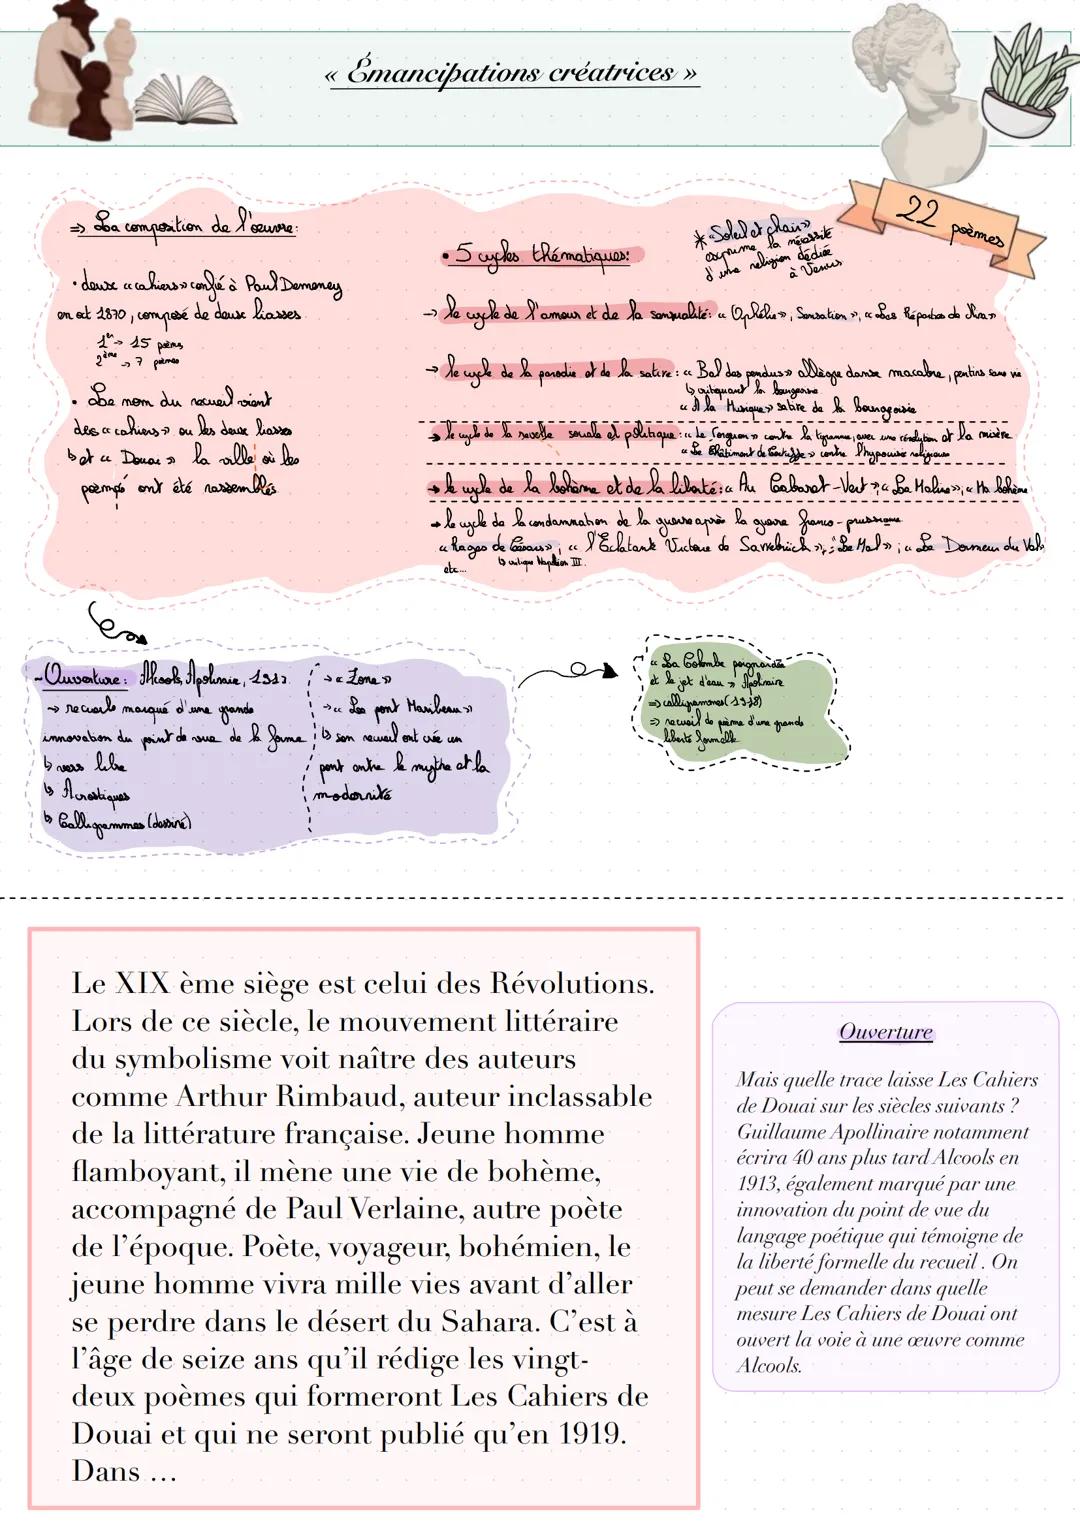 « Émancipations créatrices »
22 poèmes
=> La composition de l'œuvre:
• deux « cahiers » confié à Paul Demeney
en oct 1870, composé de deux liasses
1er -> 15 poèmes
2ème -> 7 poèmes
• Le nom du recueil vient
des « cahiers » ou les deux liasses
et « Douai » la ville où les
poèmes ont été rassemblés
• 5 cycles thématiques:
* « Soleil et chair »
exprime la nécessité
d'une religion dédiée
à Vénus
-> le cycle de l'amour et de la sensualité: « Ophélie », Sensation », « Les Réparties de Nina »
-> le cycle de la parodie et de la satire: « Bal des pendus » allègre danse macabre, pantins sans vie
critiquant la bourgeoisie
« A la Musique » satire de la bourgeoisie
-> le cycle de la revolte sociale et politique: « Le Forgeron » contre la tyrannie, avec une révolution et la misère
« Le Châtiment de Tartuffe » contre l'hypocrisie religieuse
-> le cycle de la bohème et de la liberté: « Au Cabaret-Vert », « La Maline », « Ma bohème
-> le cycle de la condamnation de la guerre après la guerre franco-prussienne
« Rages de Césars », « l'Eclatante Victoire de Sarrebrück », « Le Mal », « Le Dormeur du Val»
critique Napoléon III
etc...
- Ouverture: Alcools, Apolinaire, 1913.
-> recueils marqué d'une grande
innovation du point de vue de la forme
vers libre
Acrostiches
Calligrammes (dessiné)
-> « Zone »
-> « Les pont Maribeau »
son recueil ont crée un
pont entre le mythe et la
modernité
« La Colombe poignardée
et le jet d'eau » Apolinaire
=> calligrammes (1918)
=> recueil de poème d'une grande
liberté formelle
Le XIX ème siège est celui des Révolutions.
Lors de ce siècle, le mouvement littéraire
du symbolisme voit naître des auteurs
comme Arthur Rimbaud, auteur inclassable
de la littérature française. Jeune homme
flamboyant, il mène une vie de bohème,
accompagné de Paul Verlaine, autre poète
de l'époque. Poète, voyageur, bohémien, le
jeune homme vivra mille vies avant d'aller
se perdre dans le désert du Sahara. C'est à
l'âge de seize ans qu'il rédige les vingt-
deux poèmes qui formeront Les Cahiers de
Douai et qui ne seront publié qu'en 1919.
Dans ...
Ouverture
Mais quelle trace laisse Les Cahiers
de Douai sur les siècles suivants ?
Guillaume Apollinaire notamment
écrira 40 ans plus tard Alcools en
1913, également marqué par une
innovation du point de vue du
langage poétique qui témoigne de
la liberté formelle du recueil . On
peut se demander dans quelle
mesure Les Cahiers de Douai ont
ouvert la voie à une œuvre comme
Alcools.